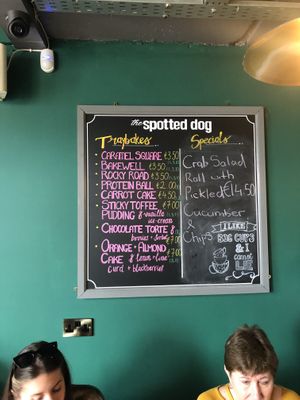 the spotted dog
Traybakes
• CARAMEL SQUARE £3.50
• BAKEWELL £3.50
• ROCKY ROAD £3.50
• PROTEIN BALL £2.00
• CARROT CAKE £4.50
• STICKY TOFFEE £7.00
PUDDING & vanilla
ice-cream
• CHOCOLATE TORTE &
berries + sorbet £7.00
• ORANGE + ALMOND £7.00
CAKE & lemon + lime
curd + blackberries
Specials
Crab Salad
Roll with
Pickled £14.50
Cucumber
&
Chips
I LIKE
BIG CUPS
& I
cannot
LIE